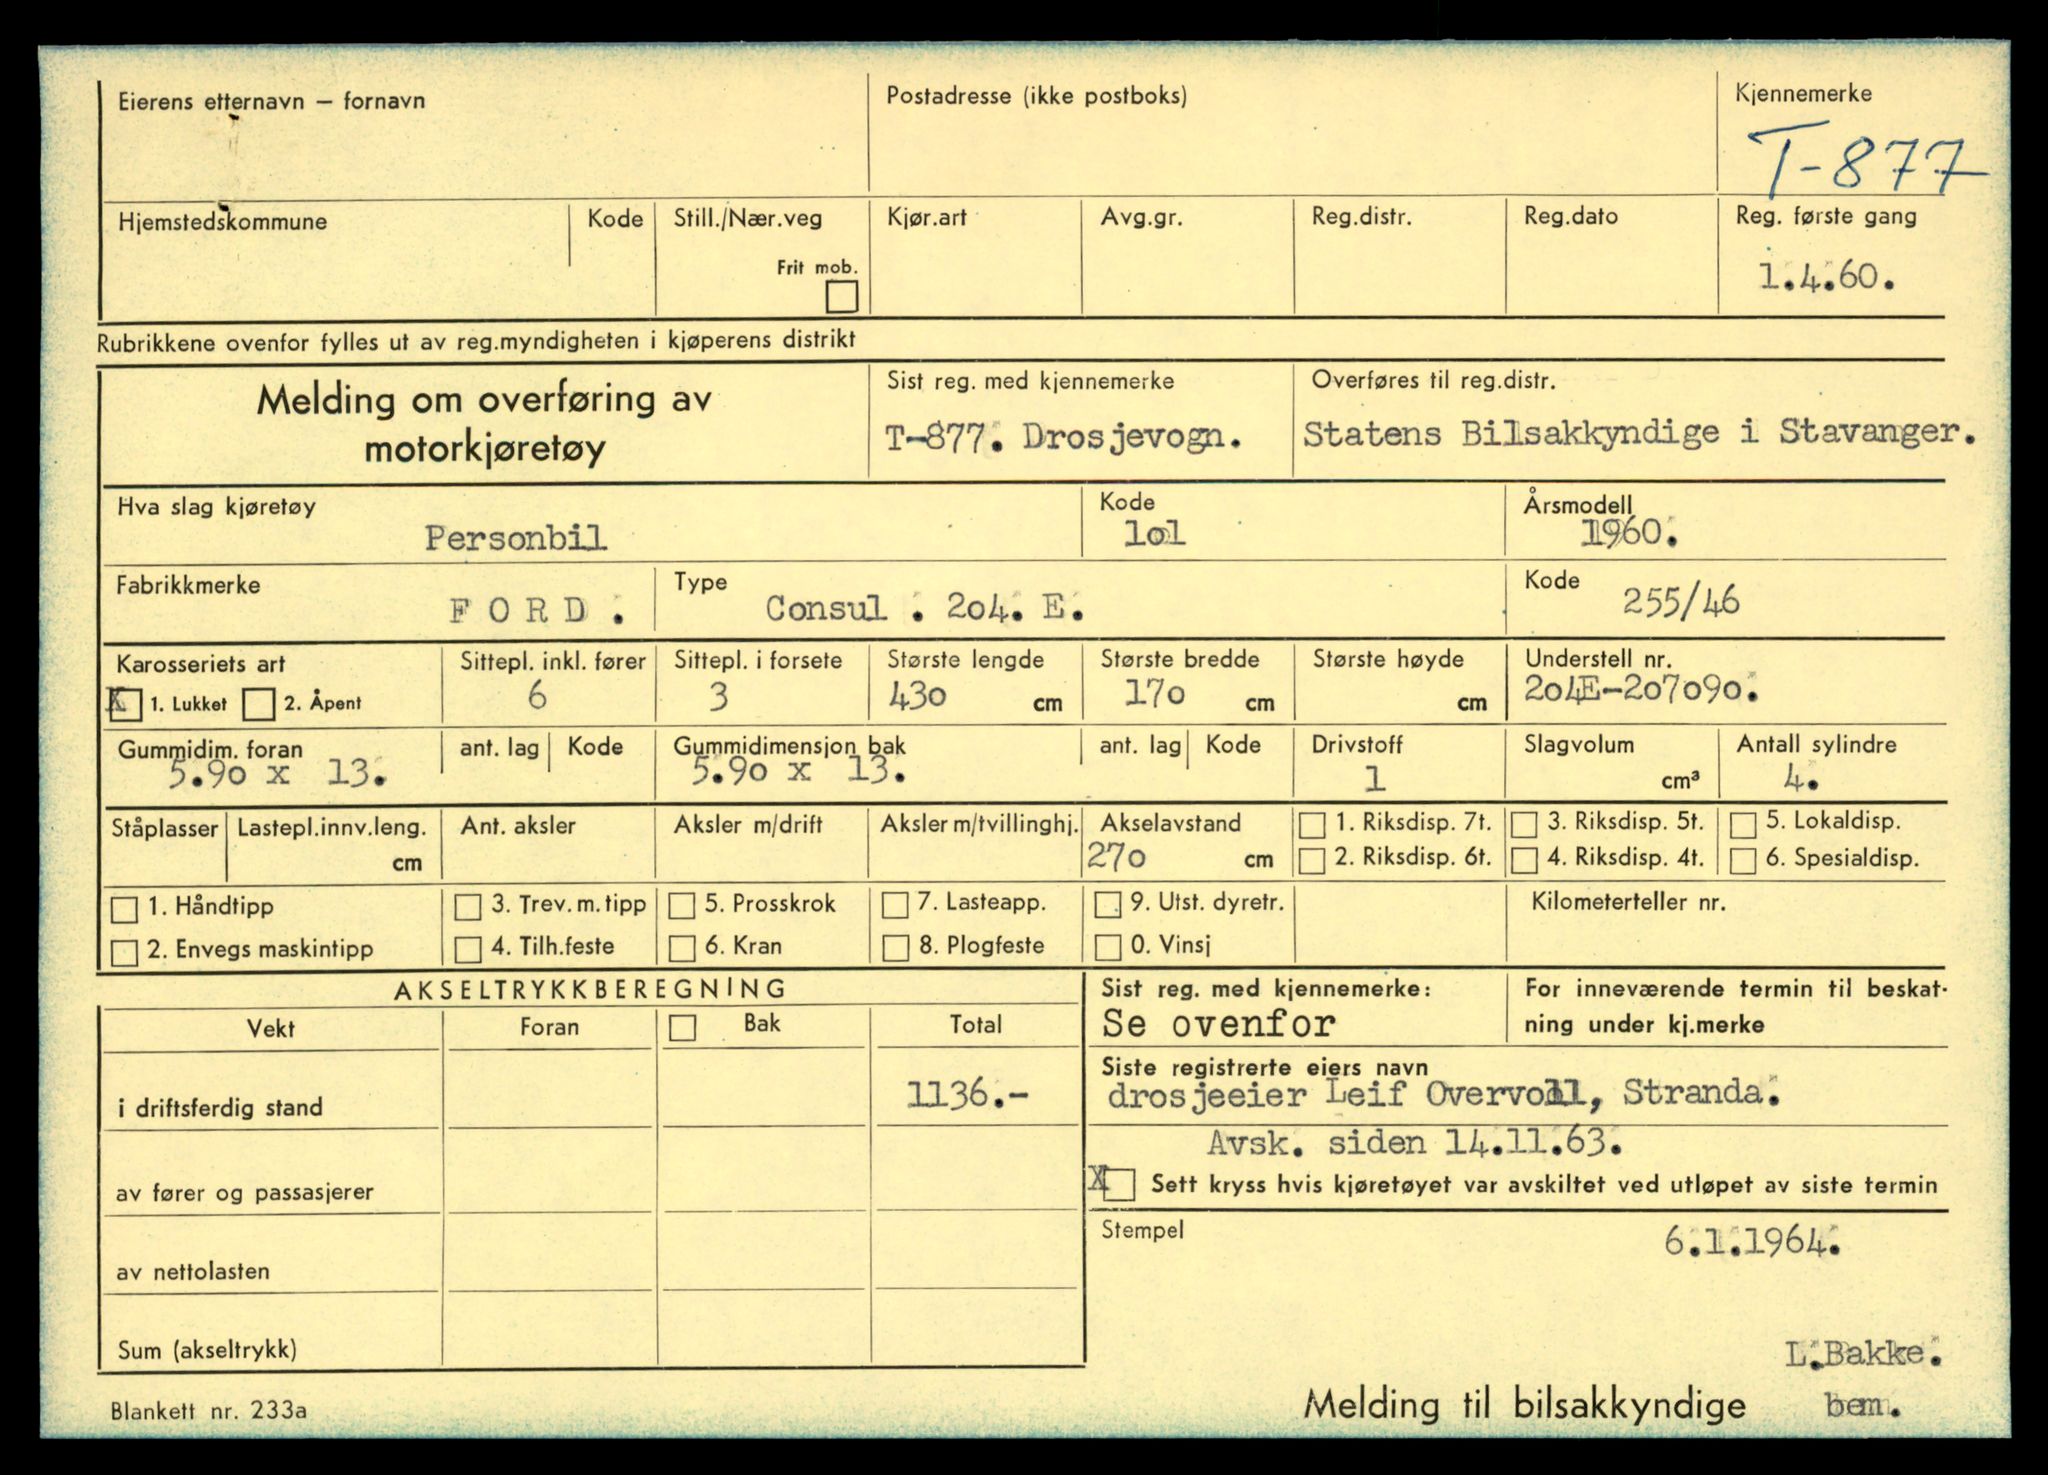 Eierens etternavn – fornavn
Postadresse (ikke postboks)
Kjennemerke
T-877
Hjemstedskommune
Kode
Still./Nær.veg
Frit mob.
Kjør.art
Avg.gr.
Reg.distr.
Reg.dato
Reg. første gang
1.4.60.
Rubrikkene ovenfor fylles ut av reg.myndigheten i kjøperens distrikt
Melding om overføring av
motorkjøretøy
Sist reg. med kjennemerke
T-877. Drosjevogn.
Overføres til reg.distr.
Statens Bilsakkyndige i Stavanger.
Hva slag kjøretøy
Personbil
Kode
lol
Årsmodell
1960.
Fabrikkmerke
F O R D .
Type
Consul . 2o4. E.
Kode
255/46
Karosseriets art
X 1. Lukket 2. Åpent
Sittepl. inkl. fører
6
Sittepl. i forsete
3
Største lengde
430 cm
Største bredde
170 cm
Største høyde
cm
Understell nr.
2o4E-2o7o9o.
Gummidim. foran
5.9o x 13.
ant. lag
Kode
Gummidimensjon bak
5.9o x 13.
ant. lag
Kode
Drivstoff
1
Slagvolum
cm³
Antall sylindre
4.
Ståplasser
Lastepl.innv.leng.
cm
Ant. aksler
Aksler m/drift
Aksler m/tvillinghj.
Akselavstand
27o cm
1. Riksdisp. 7t.
2. Riksdisp. 6t.
3. Riksdisp. 5t.
4. Riksdisp. 4t.
5. Lokaldisp.
6. Spesialdisp.
1. Håndtipp
2. Envegs maskintipp
3. Trev. m. tipp
4. Tilh.feste
5. Prosskrok
6. Kran
7. Lasteapp.
8. Plogfeste
9. Utst. dyretr.
0. Vinsj
Kilometerteller nr.
AKSELTRYKKBEREGNING
Vekt
Foran
Bak
Total
i driftsferdig stand
1136.-
av fører og passasjerer
av nettolasten
Sum (akseltrykk)
Sist reg. med kjennemerke:
Se ovenfor
For inneværende termin til beskat-
ning under kj.merke
Siste registrerte eiers navn
drosjeeier Leif Overvoll, Stranda.
Avsk. siden 14.11.63.
X Sett kryss hvis kjøretøyet var avskiltet ved utløpet av siste termin
Stempel
6.1.1964.
L.Bakke.
bem.
Blankett nr. 233a
Melding til bilsakkyndige